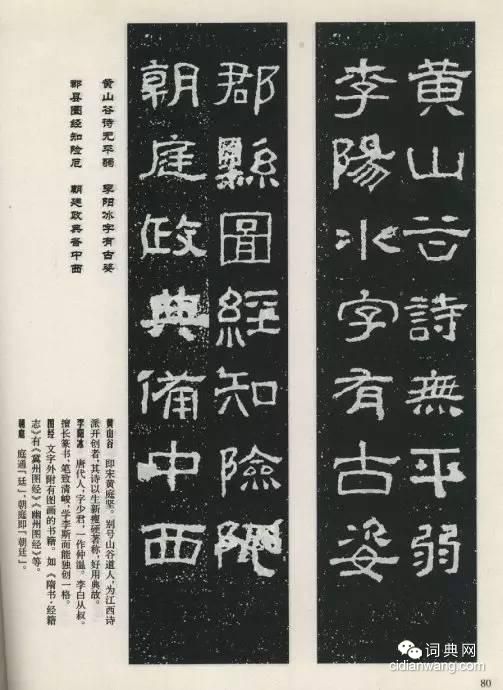 黄山谷詩無平弱
李陽氷字有古姿
郡縣圖經知險阨
朝庭政典備中西
黄山谷诗无平弱 李阳冰字有古姿
郡县图经知险厄 朝廷政典备中西
黄山谷 即宋黄庭坚。别号山谷道人,为江西诗
派开创者,其诗以生新瘦硬著称,好用典故。
李阳冰 唐代人,字少君,一作仲温。李白从叔。
擅长篆书,笔致清峻,学李斯而能独创一格。
图经 文字外附有图画的书籍。如《隋书·经籍
志》有《冀州图经》《幽州图经》等。
朝庭 庭通「廷」,朝庭即「朝廷」。
词典网
cidianwang.com
80